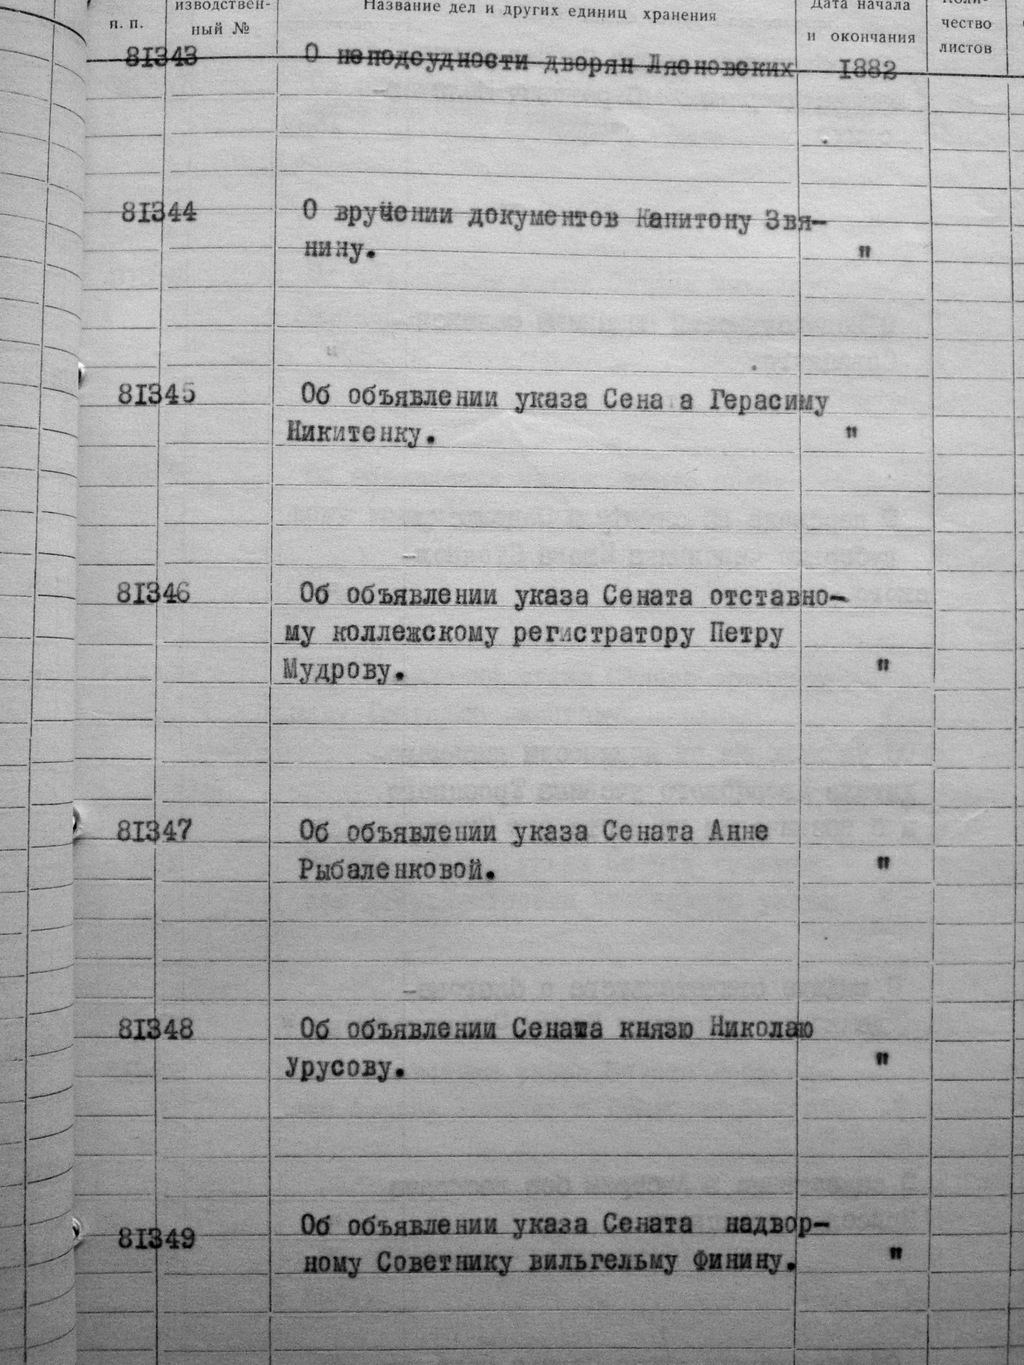 п. п.
изводствен-
ный №
Название дел и других единиц хранения
Дата начала
и окончания
чество
листов
81343 О неподсудности дворян Лясновских 1882
81344 О вручении документов Капитону Звя-
нину. "
81345 Об объявлении указа Сена а Герасиму
Никитенку. "
81346 Об объявлении указа Сената отставно-
му коллежскому регистратору Петру
Мудрову. "
81347 Об объявлении указа Сената Анне
Рыбаленковой. "
81348 Об объявлении Сената князю Николаю
Урусову. "
81349 Об объявлении указа Сената надвор-
ному Советнику вильгельму Финину. "